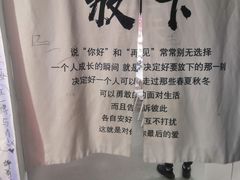 放下
说“你好”和“再见”常常别无选择
一个人成长的瞬间 就是决定好要放下的那一
决定好一个人可以走过那些春夏秋冬
可以勇敢的面对生活
而且告诉彼此
各自安好互不打扰
这就是对你最后的爱